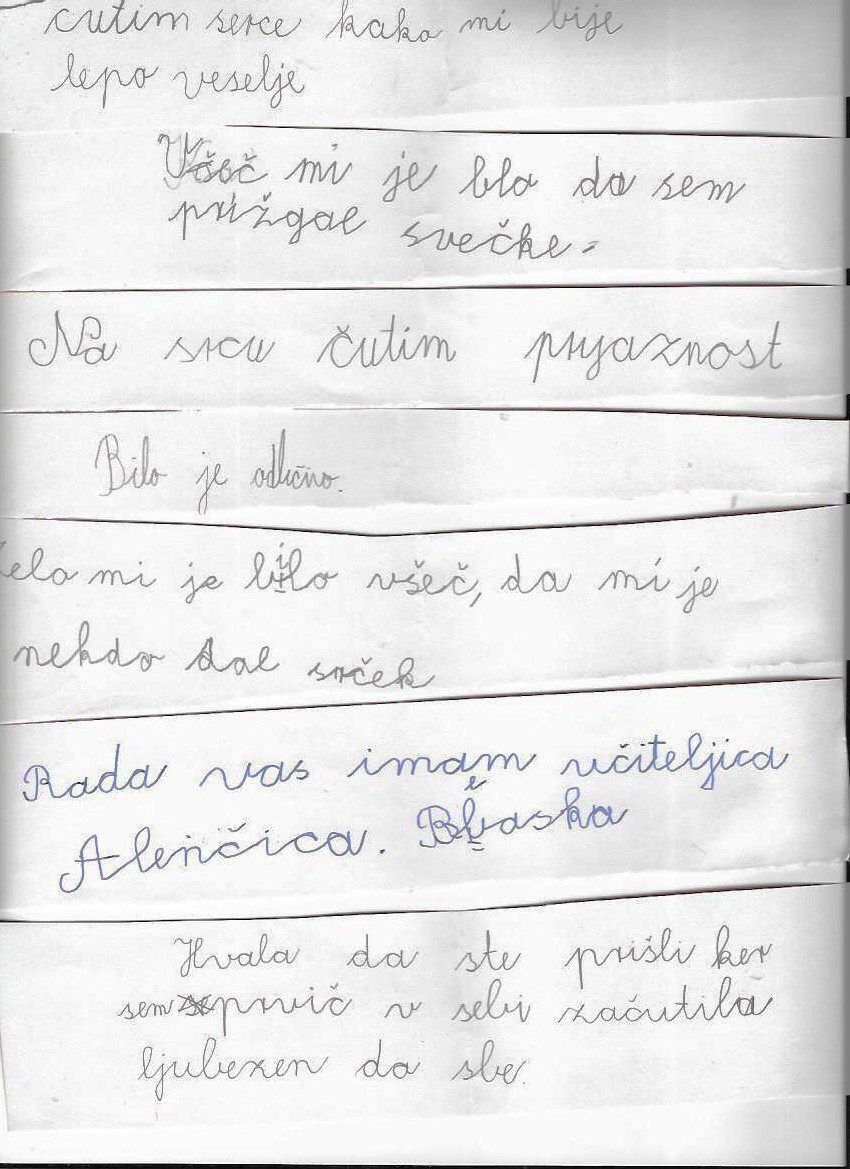 čutim serce kako mi bije
lepo veselje
Všeč mi je blo da sem
prižgal svečke.
Na srcu čutim prjaznost
Bilo je odlično.
Zelo mi je bilo všeč, da mi je
nekdo dal srček
Rada vas imam učiteljica
Alenčica.
Hvala da ste prišli ker
sem prvič v sebi začutila
ljubezen da sbe.